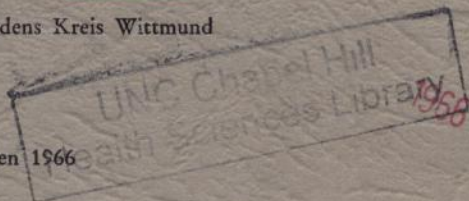 dens Kreis Wittmund
UNC Chapel Hill
Health Sciences Library
1968
en 1966